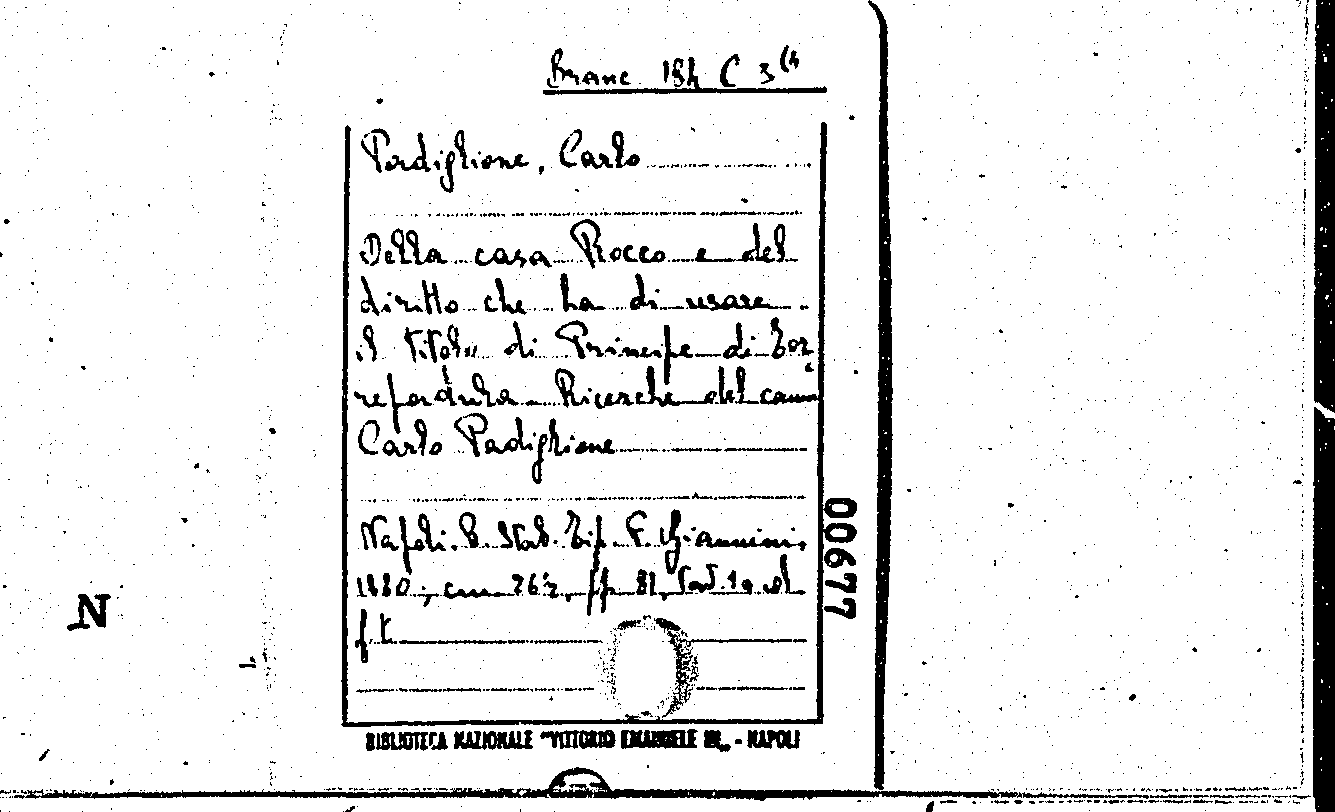 Branc 154 C 3(4
Padiglione, Carlo
Della casa Rocco e del
diritto che ha di usare
il titolo di Principe di Tor
repadula - Ricerche del comm
Carlo Padiglione
Napoli. B. Stab. Tip. F. Giannini,
1880; cm 26½, pp 81, tav. 1a
f.t.
00677
N
1
BIBLIOTECA NAZIONALE "VITTORIO EMANUELE III„ - NAPOLI